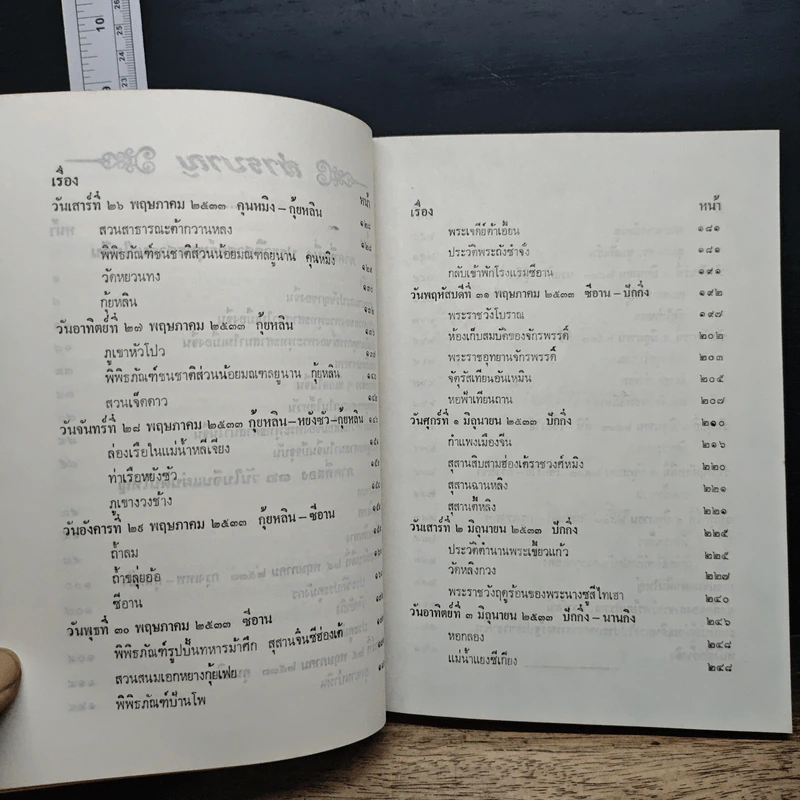 เรื่อง หน้า
วันเสาร์ที่ ๒๖ พฤษภาคม ๒๕๓๓ คุนหมิง–กุ้ยหลิน
สวนสาธารณะต้ากวานหลง
พิพิธภัณฑ์ชนชาติส่วนน้อยมณฑลยูนาน คุนหมิง
วัดหยวนทง
กุ้ยหลิน
วันอาทิตย์ที่ ๒๗ พฤษภาคม ๒๕๓๓ กุ้ยหลิน
ภูเขาหัวโปว
พิพิธภัณฑ์ชนชาติส่วนน้อยมณฑลยูนาน กุ้ยหลิน
สวนเจ็ดดาว
วันจันทร์ที่ ๒๘ พฤษภาคม ๒๕๓๓ กุ้ยหลิน–หยังซัว–กุ้ยหลิน
ล่องเรือในแม่น้ำหลีเจียง
ท่าเรือหยังซัว
ภูเขางวงช้าง
วันอังคารที่ ๒๙ พฤษภาคม ๒๕๓๓ กุ้ยหลิน–ซีอาน
ถ้ำลม
ถ้ำขลุ่ยอ้อ
ซีอาน
วันพุธที่ ๓๐ พฤษภาคม ๒๕๓๓ ซีอาน
พิพิธภัณฑ์รูปปั้นทหารม้าศึก สุสานจิ๋นซีฮ่องเต้
สวนสนมเอกหยางกุ้ยเฟย
พิพิธภัณฑ์บ้านโพ
เรื่อง หน้า
พระเจดีย์ต้าเอี้ยน ๑๘๑
ประวัติพระถังซำจั๋ง ๑๘๑
กลับเข้าพักโรงแรมซีอาน ๑๙๑
วันพฤหัสบดีที่ ๓๑ พฤษภาคม ๒๕๓๓ ซีอาน–ปักกิ่ง ๑๙๒
พระราชวังโบราณ ๑๙๗
ห้องเก็บสมบัติของจักรพรรดิ์ ๒๐๒
พระราชอุทยานจักรพรรดิ์ ๒๐๓
จัตุรัสเทียนอันเหมิน ๒๐๕
หยฟ้าเทียนถาน ๒๐๗
วันศุกร์ที่ ๑ มิถุนายน ๒๕๓๓ ปักกิ่ง ๒๑๐
กำแพงเมืองจีน ๒๑๖
สุสานสิบสามฮ่องเต้ราชวงศ์หมิง ๒๒๐
สุสานฉานหลิง ๒๒๑
สุสานตี้หลิง ๒๒๑
วันเสาร์ที่ ๒ มิถุนายน ๒๕๓๓ ปักกิ่ง ๒๒๕
ประวัติตำนานพระเขี้ยวแก้ว ๒๒๕
วัดหลิงกวง ๒๒๗
พระราชวังฤดูร้อนของพระนางซูสีไทเฮา ๒๔๐
วันอาทิตย์ที่ ๓ มิถุนายน ๒๕๓๓ ปักกิ่ง–นานกิง ๒๔๖
หอกลอง ๒๔๘
แม่น้ำแยงซีเกียง ๒๔๘